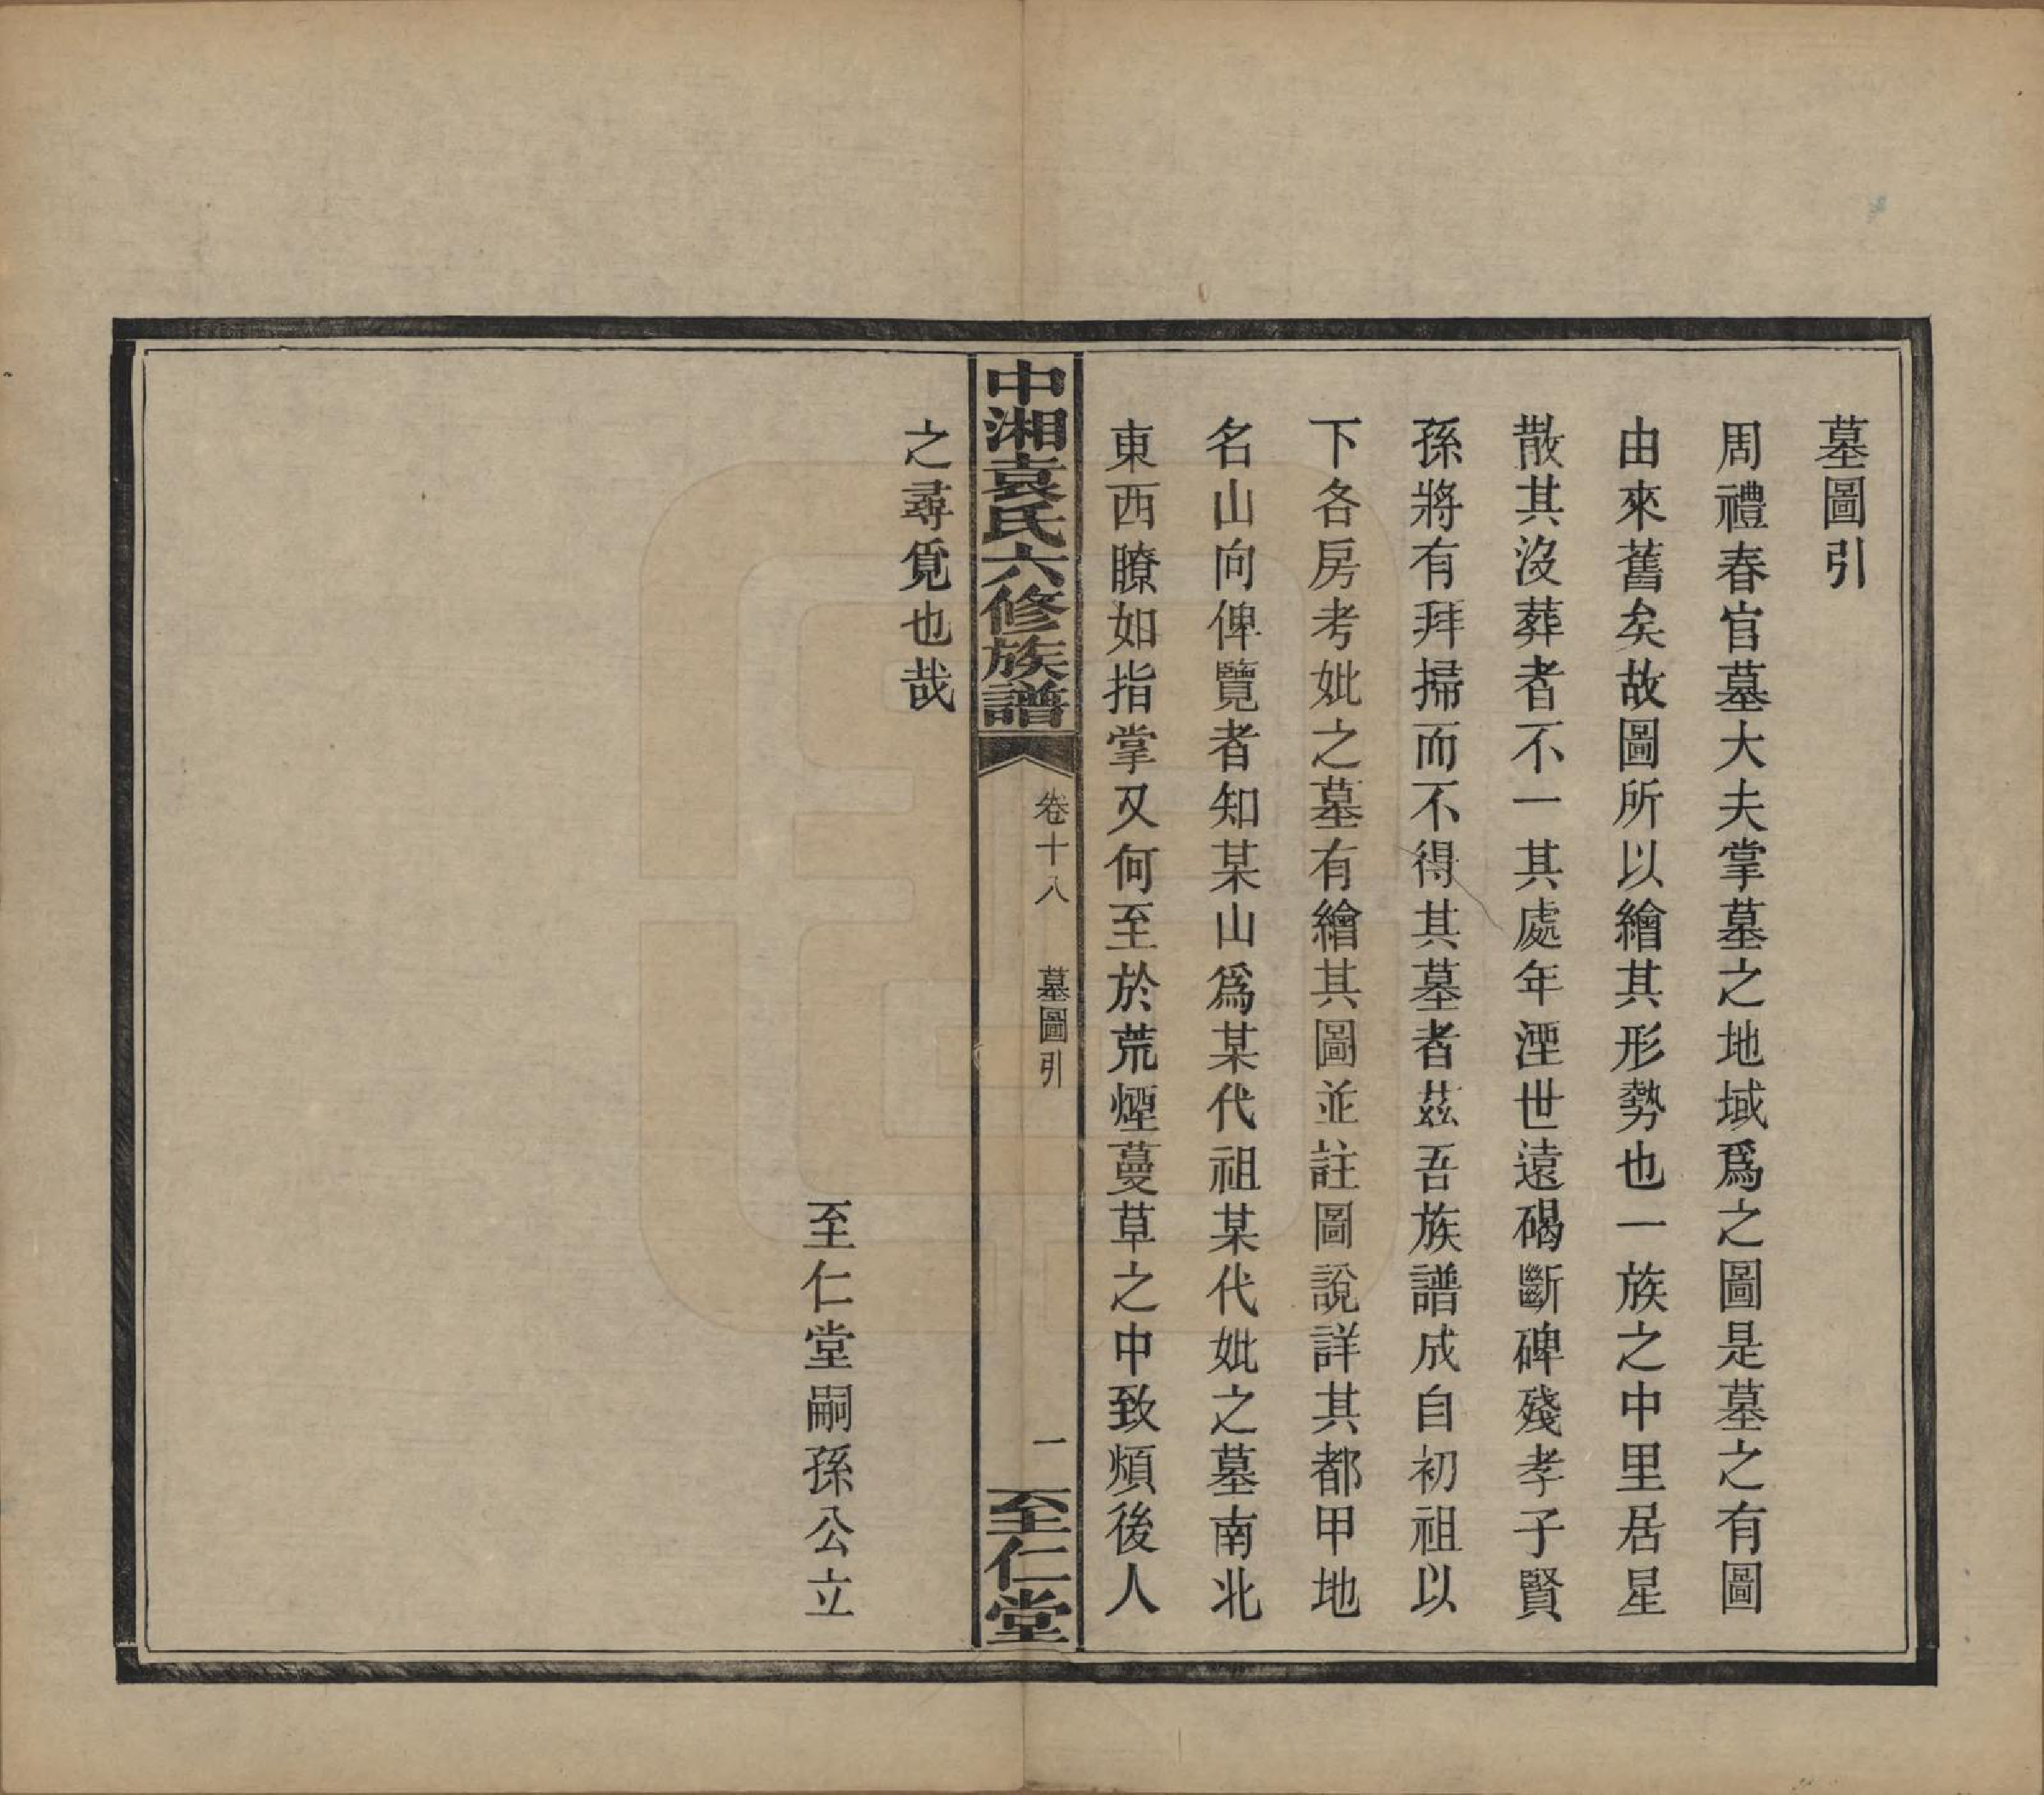 墓圖引
周禮春官墓大夫掌墓之地域爲之圖是墓之有圖
由來舊矣故圖所以繪其形勢也一族之中里居星
散其沒葬者不一其處年湮世遠碣斷碑殘孝子賢
孫將有拜掃而不得其墓者茲吾族譜成自初祖以
下各房考妣之墓有繪其圖並註圖說詳其都甲地
名山向俾覽者知某山爲某代祖某代妣之墓南北
東西瞭如指掌又何至於荒煙蔓草之中致煩後人
中湘袁氏六修族譜
卷十八
墓圖引
一
至仁堂
之尋覓也哉
至仁堂嗣孫公立